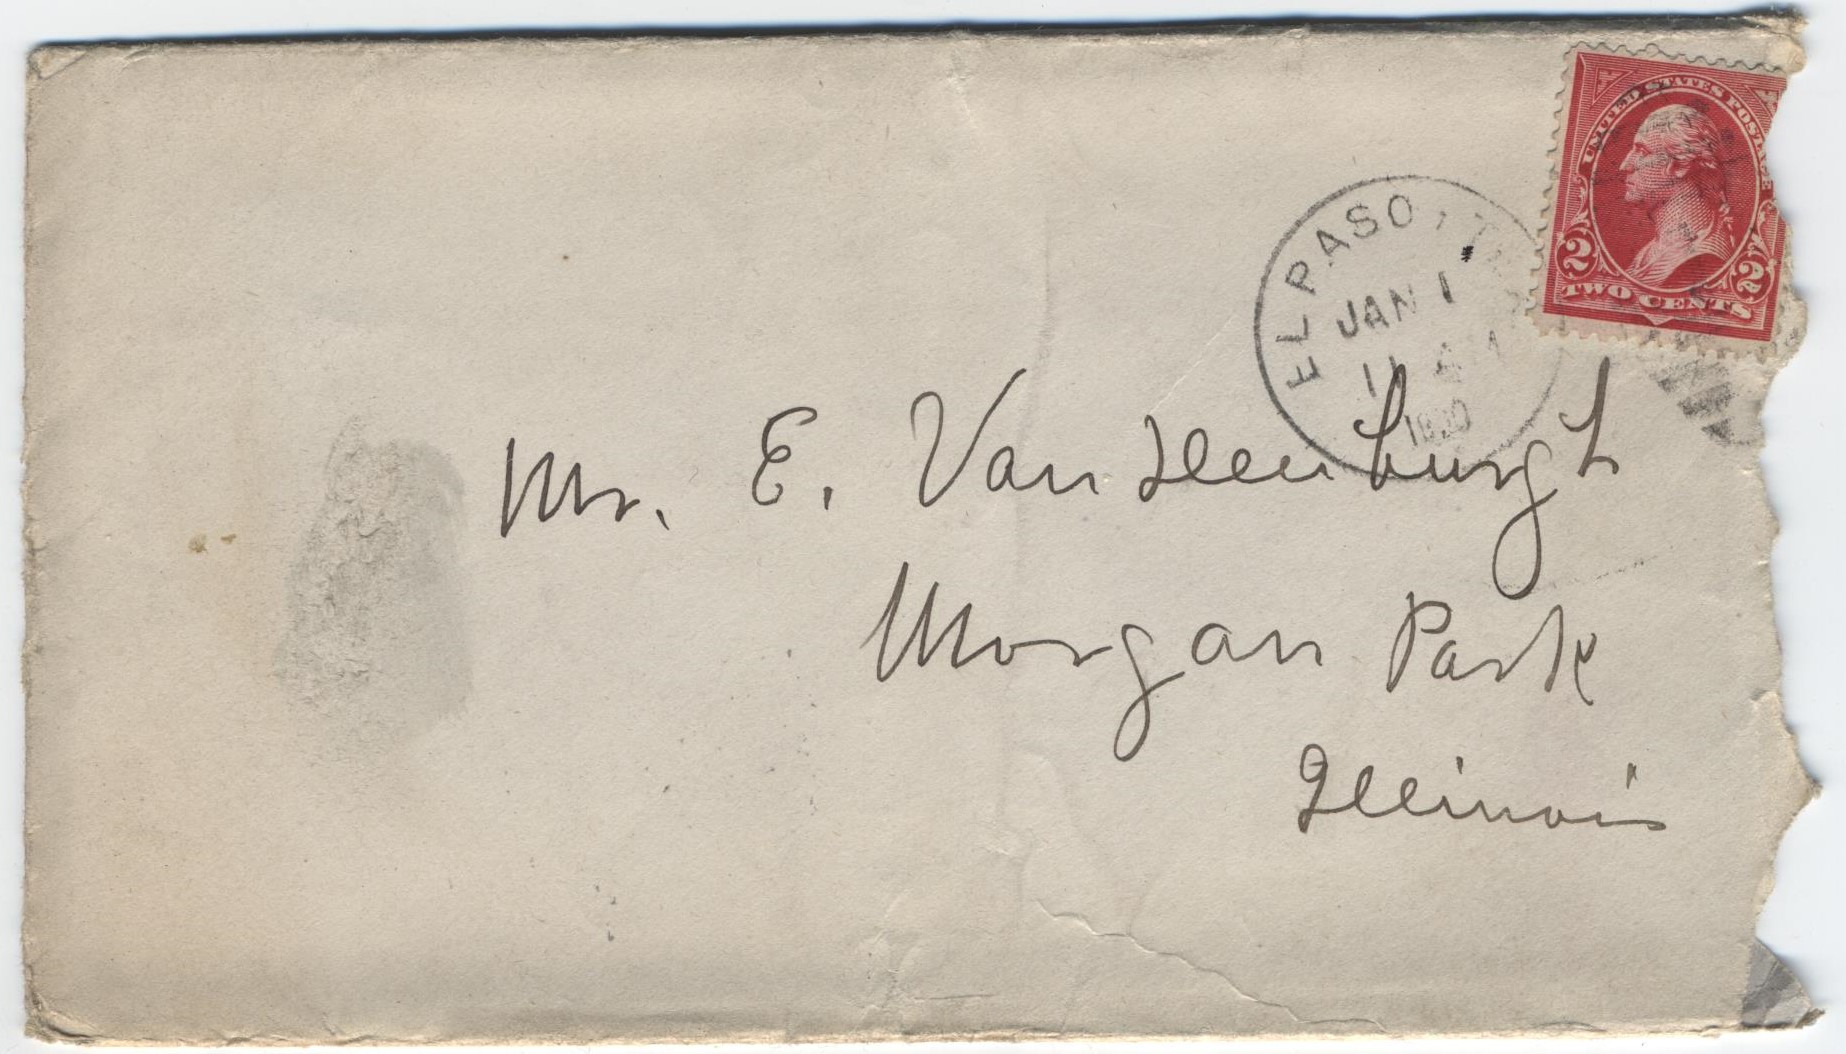 UNITED STATES POSTAGE
2 2
TWO CENTS
EL PASO, TEX
JAN 1
11 AM
Mr. E. Vandenburgh
Morgan Park
Illinois